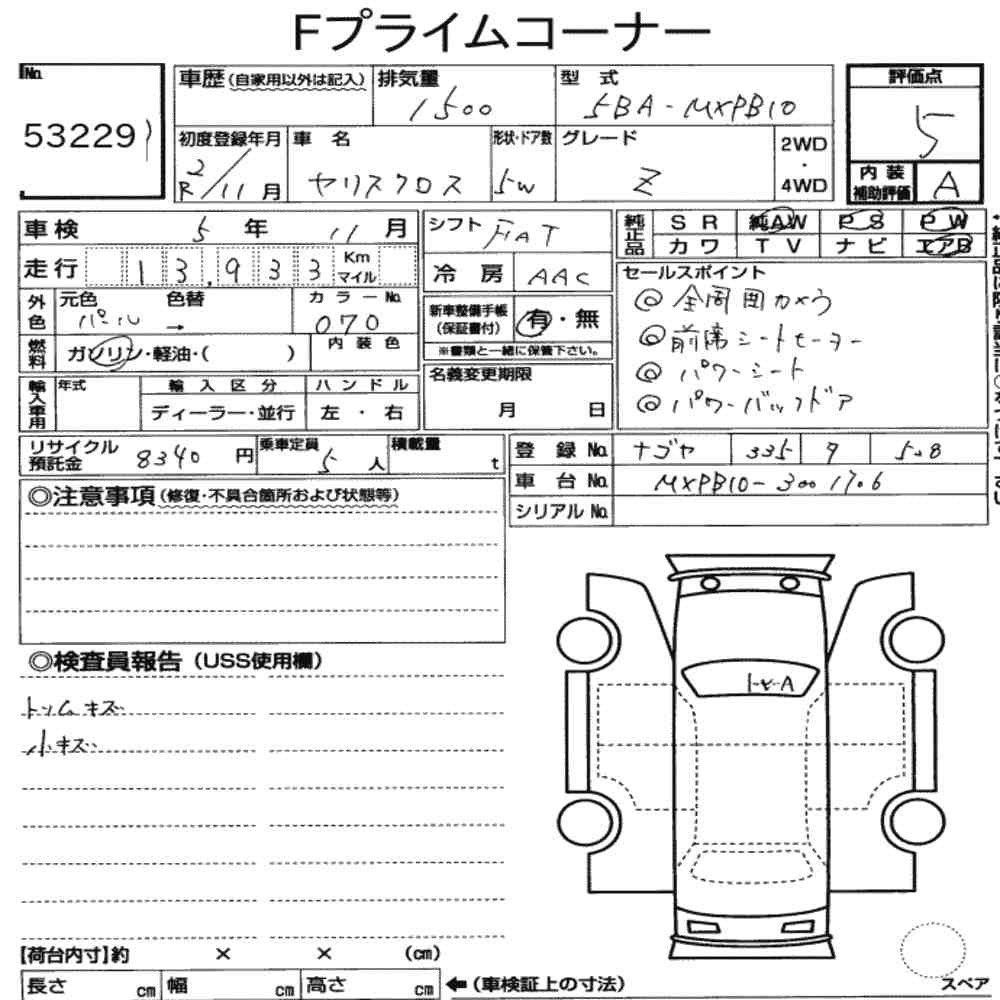 Fプライムコーナー
No. 53229
車歴(自家用以外は記入) 排気量 1500 型式 5BA-MXPB10 評価点 5
初度登録年月 R2/11月 車名 ヤリスクロス 形状・ドア数 5W グレード Z 2WD・4WD 内装補助評価 A
車検 5年 11月 シフト FAT 純正品 SR 純AW PS PW
カワ TV ナビ エアB
走行 13,933 Km マイル 冷房 AAC セールスポイント
外色 元色 パール 色替 → カラーNo. 070 新車整備手帳(保証書付) 有・無
※書類と一緒に保管下さい。
燃料 ガソリン・軽油・( ) 内装色
◎全周囲カメラ
◎前席シートヒーター
◎パワーシート
◎パワーバックドア
輸入車用 年式 輸入区分 ハンドル 名義変更期限
ディーラー・並行 左・右 月 日
リサイクル預託金 8340円 乗車定員 5人 積載量 t 登録No. ナゴヤ 335 ヲ
車台No. MXPB10-3001706
シリアルNo.
◎注意事項(修復・不具合箇所および状態等)
◎検査員報告(USS使用欄)
トリムキズ
小キズ
トビA
【荷台内寸】約 × × (cm)
長さ cm 幅 cm 高さ cm ←(車検証上の寸法)
スペア